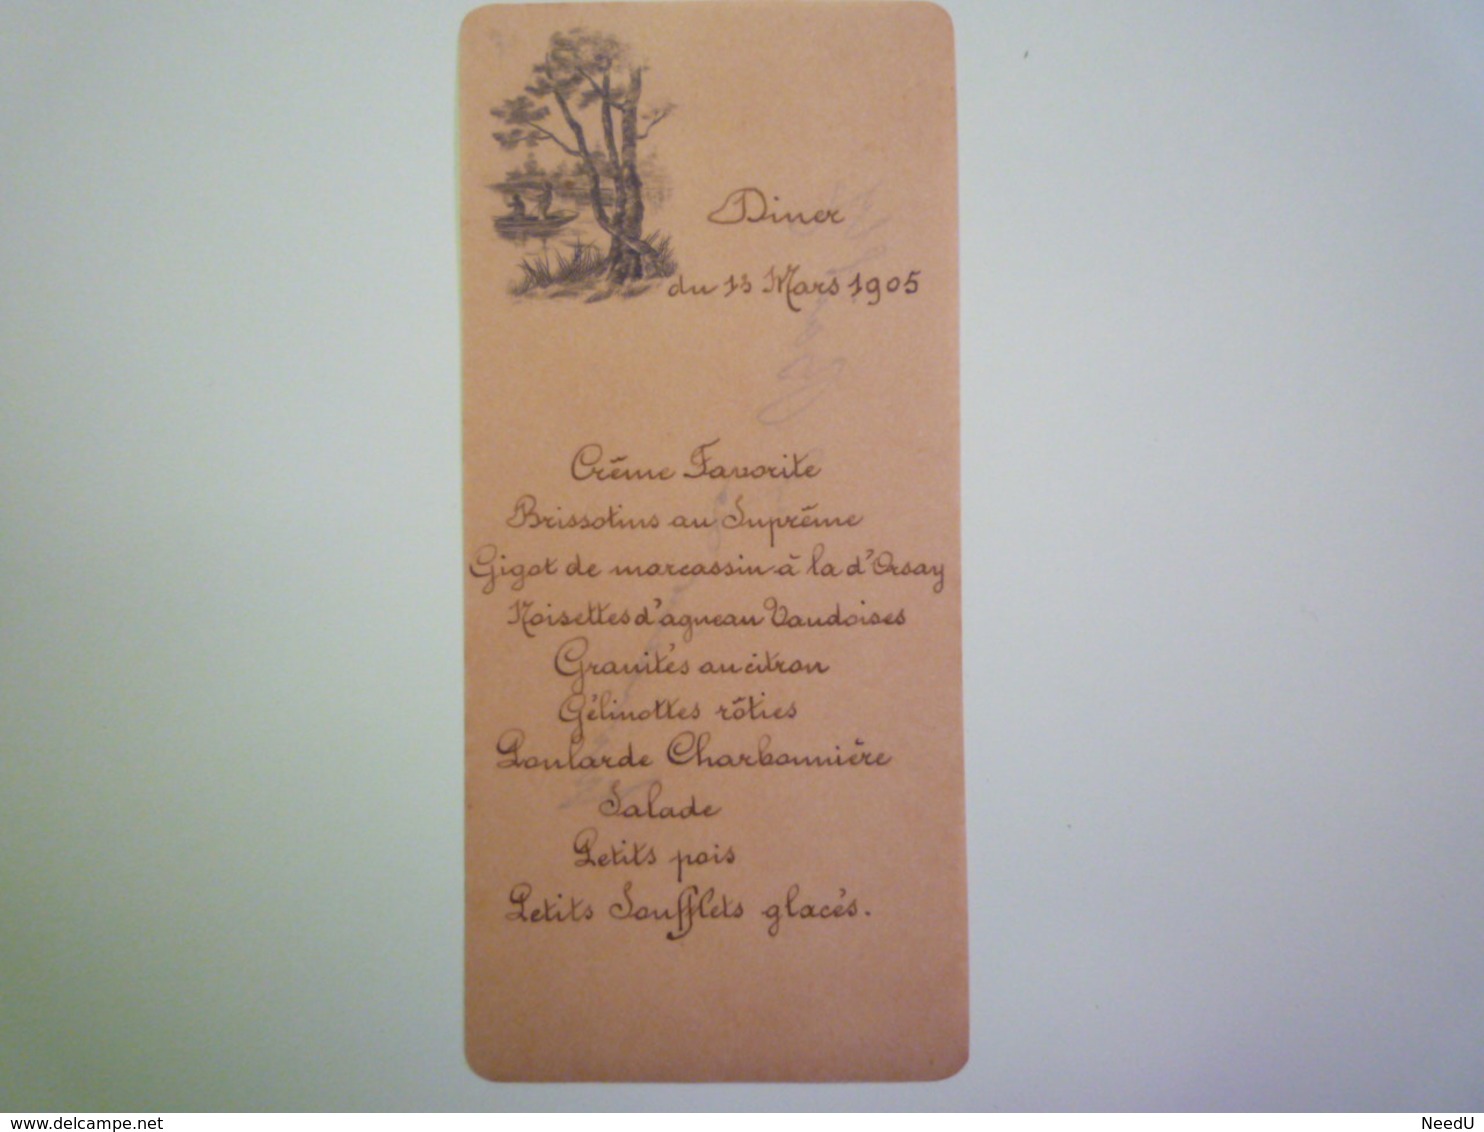 Diner
du 13 Mars 1905
Crême Favorite
Brissotins au Suprême
Gigot de marcassin à la d'Orsay
Noisettes d'agneau Vaudoises
Granités au citron
Gélinottes rôties
Poularde Charbonnière
Salade
Petits pois
Petits Soufflets glacés.
delcampe.net
NeedU